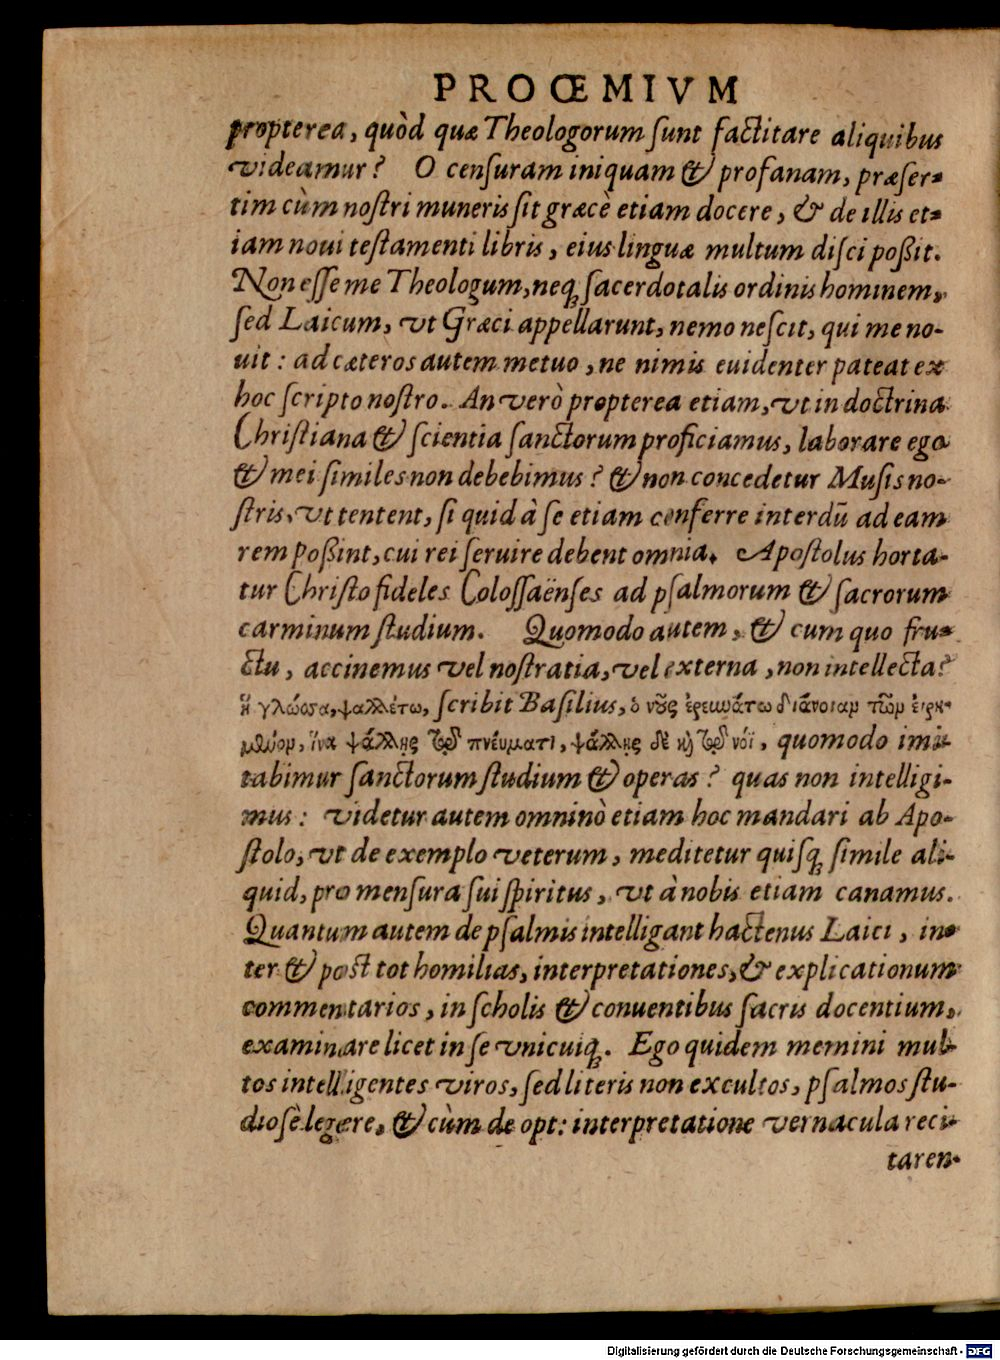 PROŒMIVM
propterea, quòd quæ Theologorum ſunt factitare aliquibus
videamur? O cenſuram iniquam & profanam, præſer=
tim cùm noſtri muneris ſit græcè etiam docere, & de illis et=
iam noui teſtamenti libris, eius linguæ multum diſci poßit.
Non eſſe me Theologum, neq; ſacerdotalis ordinis hominem,
ſed Laicum, vt Græci appellarunt, nemo neſcit, qui me no-
uit: ad cæteros autem metuo, ne nimis euidenter pateat ex
hoc ſcripto noſtro. An verò propterea etiam, vt in doctrina
Chriſtiana & ſcientia ſanctorum proficiamus, laborare ego
& mei ſimiles non debebimus? & non concedetur Muſis no-
ſtris, vt tentent, ſi quid à ſe etiam conferre interdū ad eam
rem poßint, cui rei ſeruire debent omnia. Apoſtolus horta-
tur Chriſto fideles Coloſſaënſes ad pſalmorum & ſacrorum
carminum ſtudium. Quomodo autem, & cum quo fru=
ctu, accinemus vel noſtratia, vel externa, non intellecta?
ἡ γλώσσα, ψαλλέτω, ſcribit Baſilius, ὁ νοῦς ἐρευνάτω διάνοιαν τῶν εἰρη-
μένων, ἵνα ψάλλῃς τῷ πνεύματι, ψάλλῃς δὲ καὶ τῷ νόϊ, quomodo imi-
tabimur ſanctorum ſtudium & operas? quas non intelligi-
mus: videtur autem omninò etiam hoc mandari ab Apo-
ſtolo, vt de exemplo veterum, meditetur quiſq; ſimile ali-
quid, pro menſura ſui ſpiritus, vt à nobis etiam canamus.
Quantum autem de pſalmis intelligant hactenus Laici, in-
ter & poſt tot homilias, interpretationes, & explicationum
commentarios, in ſcholis & conuentibus ſacris docentium,
examinare licet in ſe vnicuiq;. Ego quidem memini mul-
tos intelligentes viros, ſed literis non excultos, pſalmos ſtu-
dioſè legere, & cùm de opt: interpretatione vernacula reci-
taren-
Digitalisierung gefördert durch die Deutsche Forschungsgemeinschaft - DFG